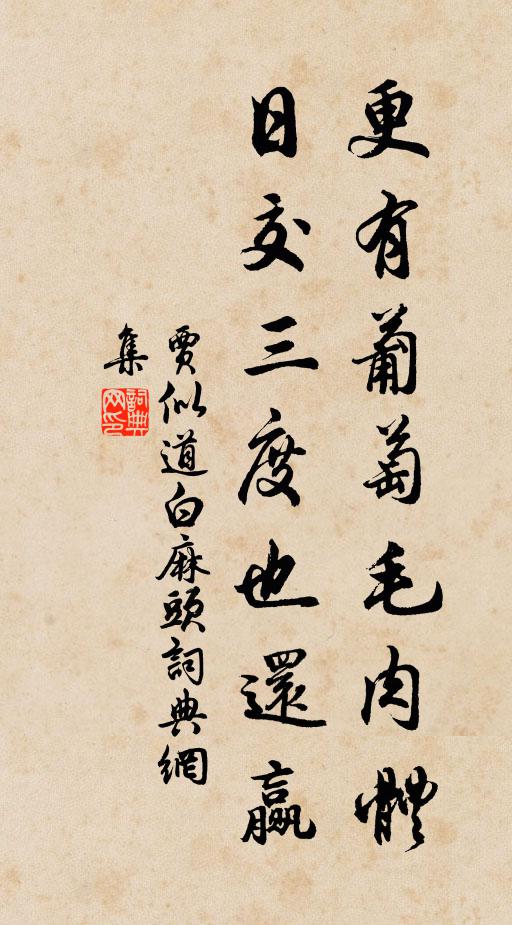 更有葡萄毛肉體
日交三度也還贏
賈似道白麻頭詞典網
集
詞典網印